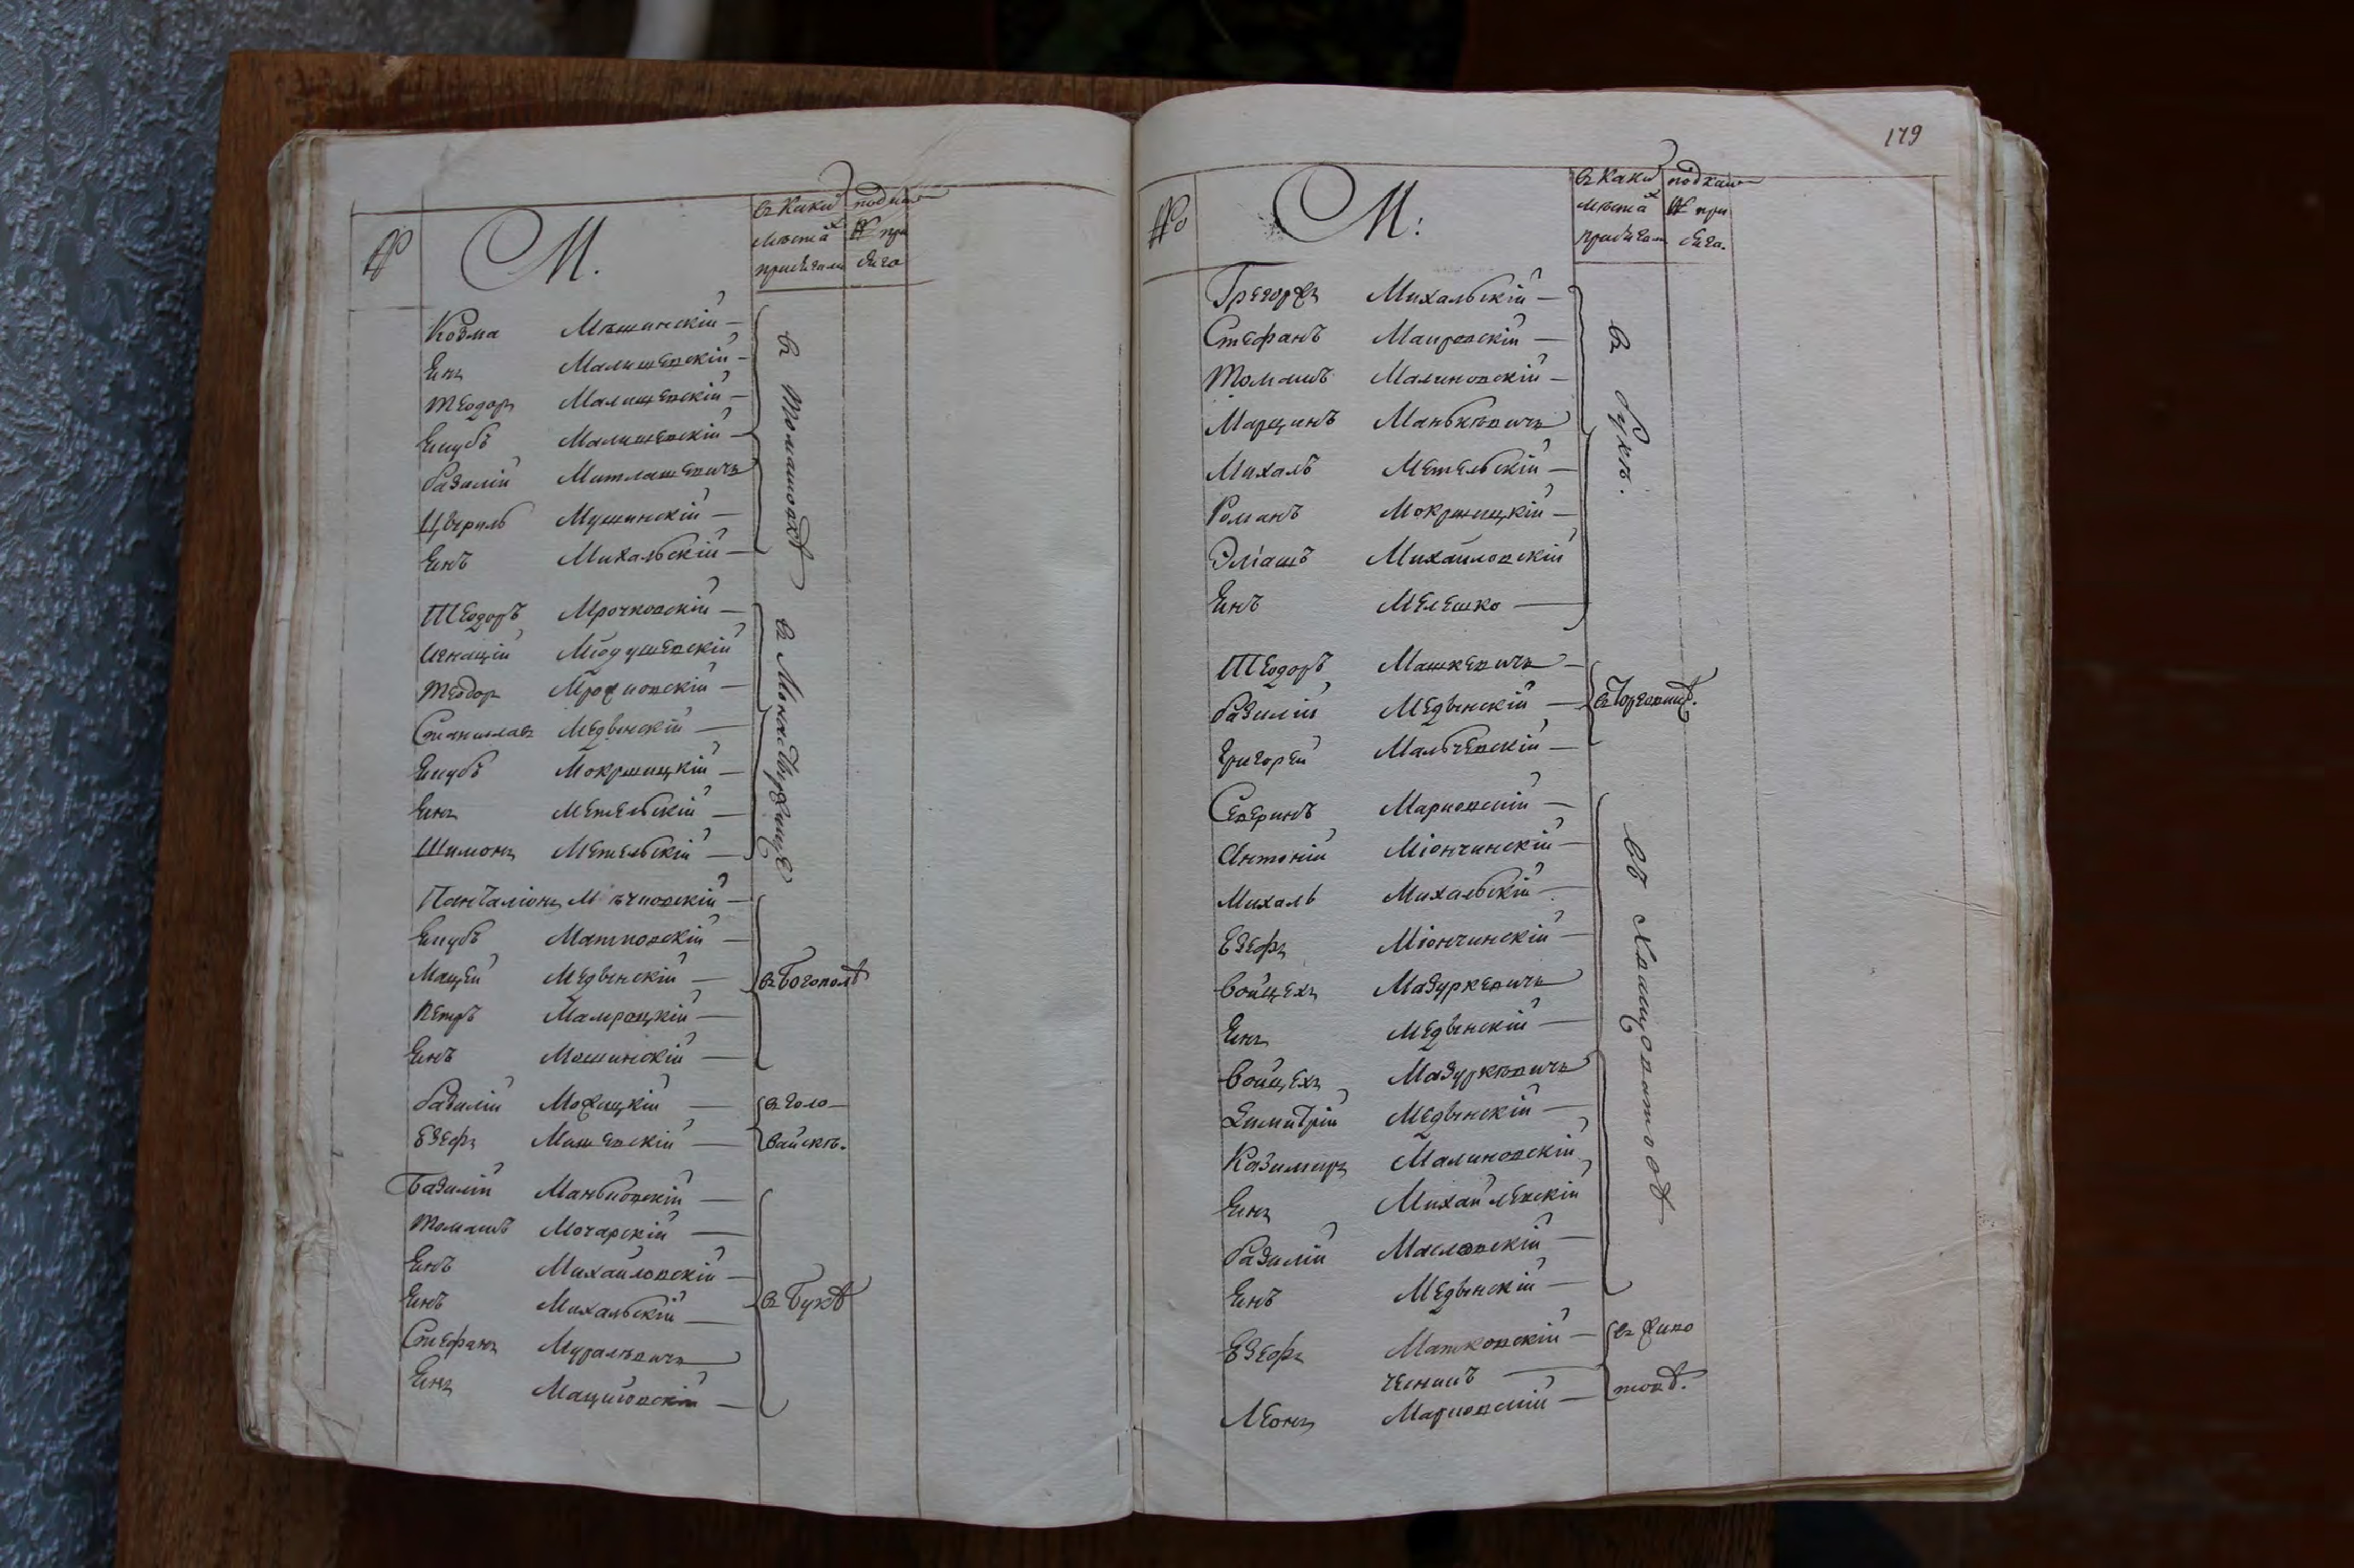 №
М.
въ какихъ
мѣста
присягали
под ка
№ при
сяга
Козма Мѣшинскій —
Янъ Малишевскій —
Теодоръ Малишевскій —
Якубъ Малишевскій —
Базилій Матлашевичъ
Цыриль Мушинскій —
Янъ Михальскій —
въ Томашовкѣ
Теодоръ Мрочковскій —
Игнацій Модушевскій
Теодоръ
Станиславъ Медвинскій —
Якубъ Мокржицкій —
Янъ Метельскій —
Шимонъ Метельскій —
въ Монастырищѣ
Панталіонъ Мѣчковскій —
Якубъ Матковскій —
Мацей Медвинскій —
Петръ
Янъ Мошинскій —
въ Богополѣ
Базилій —
Езефъ Машевскій —
въ Голо-
вайскѣ.
Базилій Маньковскій —
Томашъ Мочарскій —
Янъ Михайловскій —
Янъ Михальскій —
Стефанъ Муралѣвичъ
Янъ Маціовскій —
въ Букѣ
179
№
М:
въ какихъ
мѣста
присягали
под каким
№ при
сяга.
Грегоржъ Михальскій —
Стефанъ —
Томашъ Малиновскій —
Марцинъ Манькѣвичъ
Михалъ Метельскій —
Романъ Мокржицкій —
Эліашъ Михайловскій
Янъ Мелешко —
въ Букѣ.
Теодоръ Машкевичъ —
Базилій Медвинскій —
Григорей Мальчевскій —
Северинъ Марковскій —
Антоній Міончинскій —
Михаль Михальскій —
Езефъ Міончинскій —
Войцехъ Мазуркевичъ
Янъ Медвинскій —
Войцехъ Мазуркѣвичъ
Димитрій Медвинскій —
Казимиръ Малиновскій
Янъ Михайлевскій
Базилій Масловскій —
Янъ Медвинскій —
въ Хващоватой
Езефъ Матковскій —
Леонъ Марковскій —
въ Живо
товѣ.